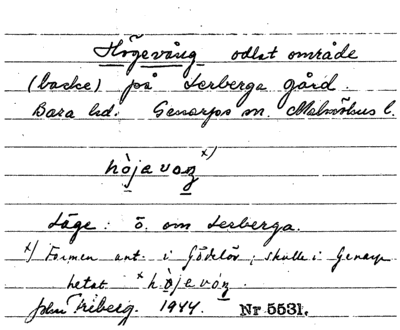 Högevång odlat område
(backe) på Lerberga gård.
Bara hd. Genarps sn. Malmöhus l.
hòjavoŋ x)
Läge: ö. om Lerberga.
x) Formen ant. i Gödelöv; skulle i Genarp
hetat x hòjevóŋ
John Friberg. 1944. Nr 5531.